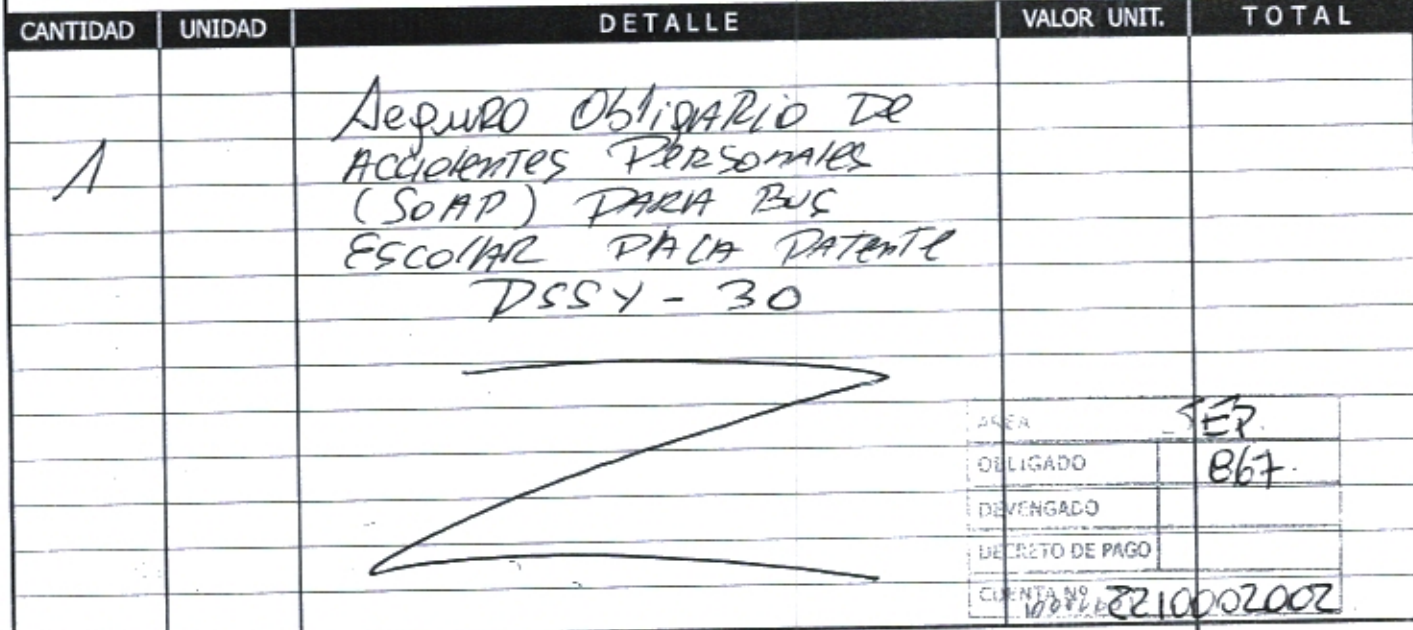 CANTIDAD UNIDAD DETALLE VALOR UNIT. TOTAL
Seguro Obligario De
1 Accidentes Personales
(SOAP) PARA Bus
Escolar Placa Patente
DSSY - 30
AREA SEP.
OBLIGADO 867.
DEVENGADO
DECRETO DE PAGO
CUENTA Nº 2210002002